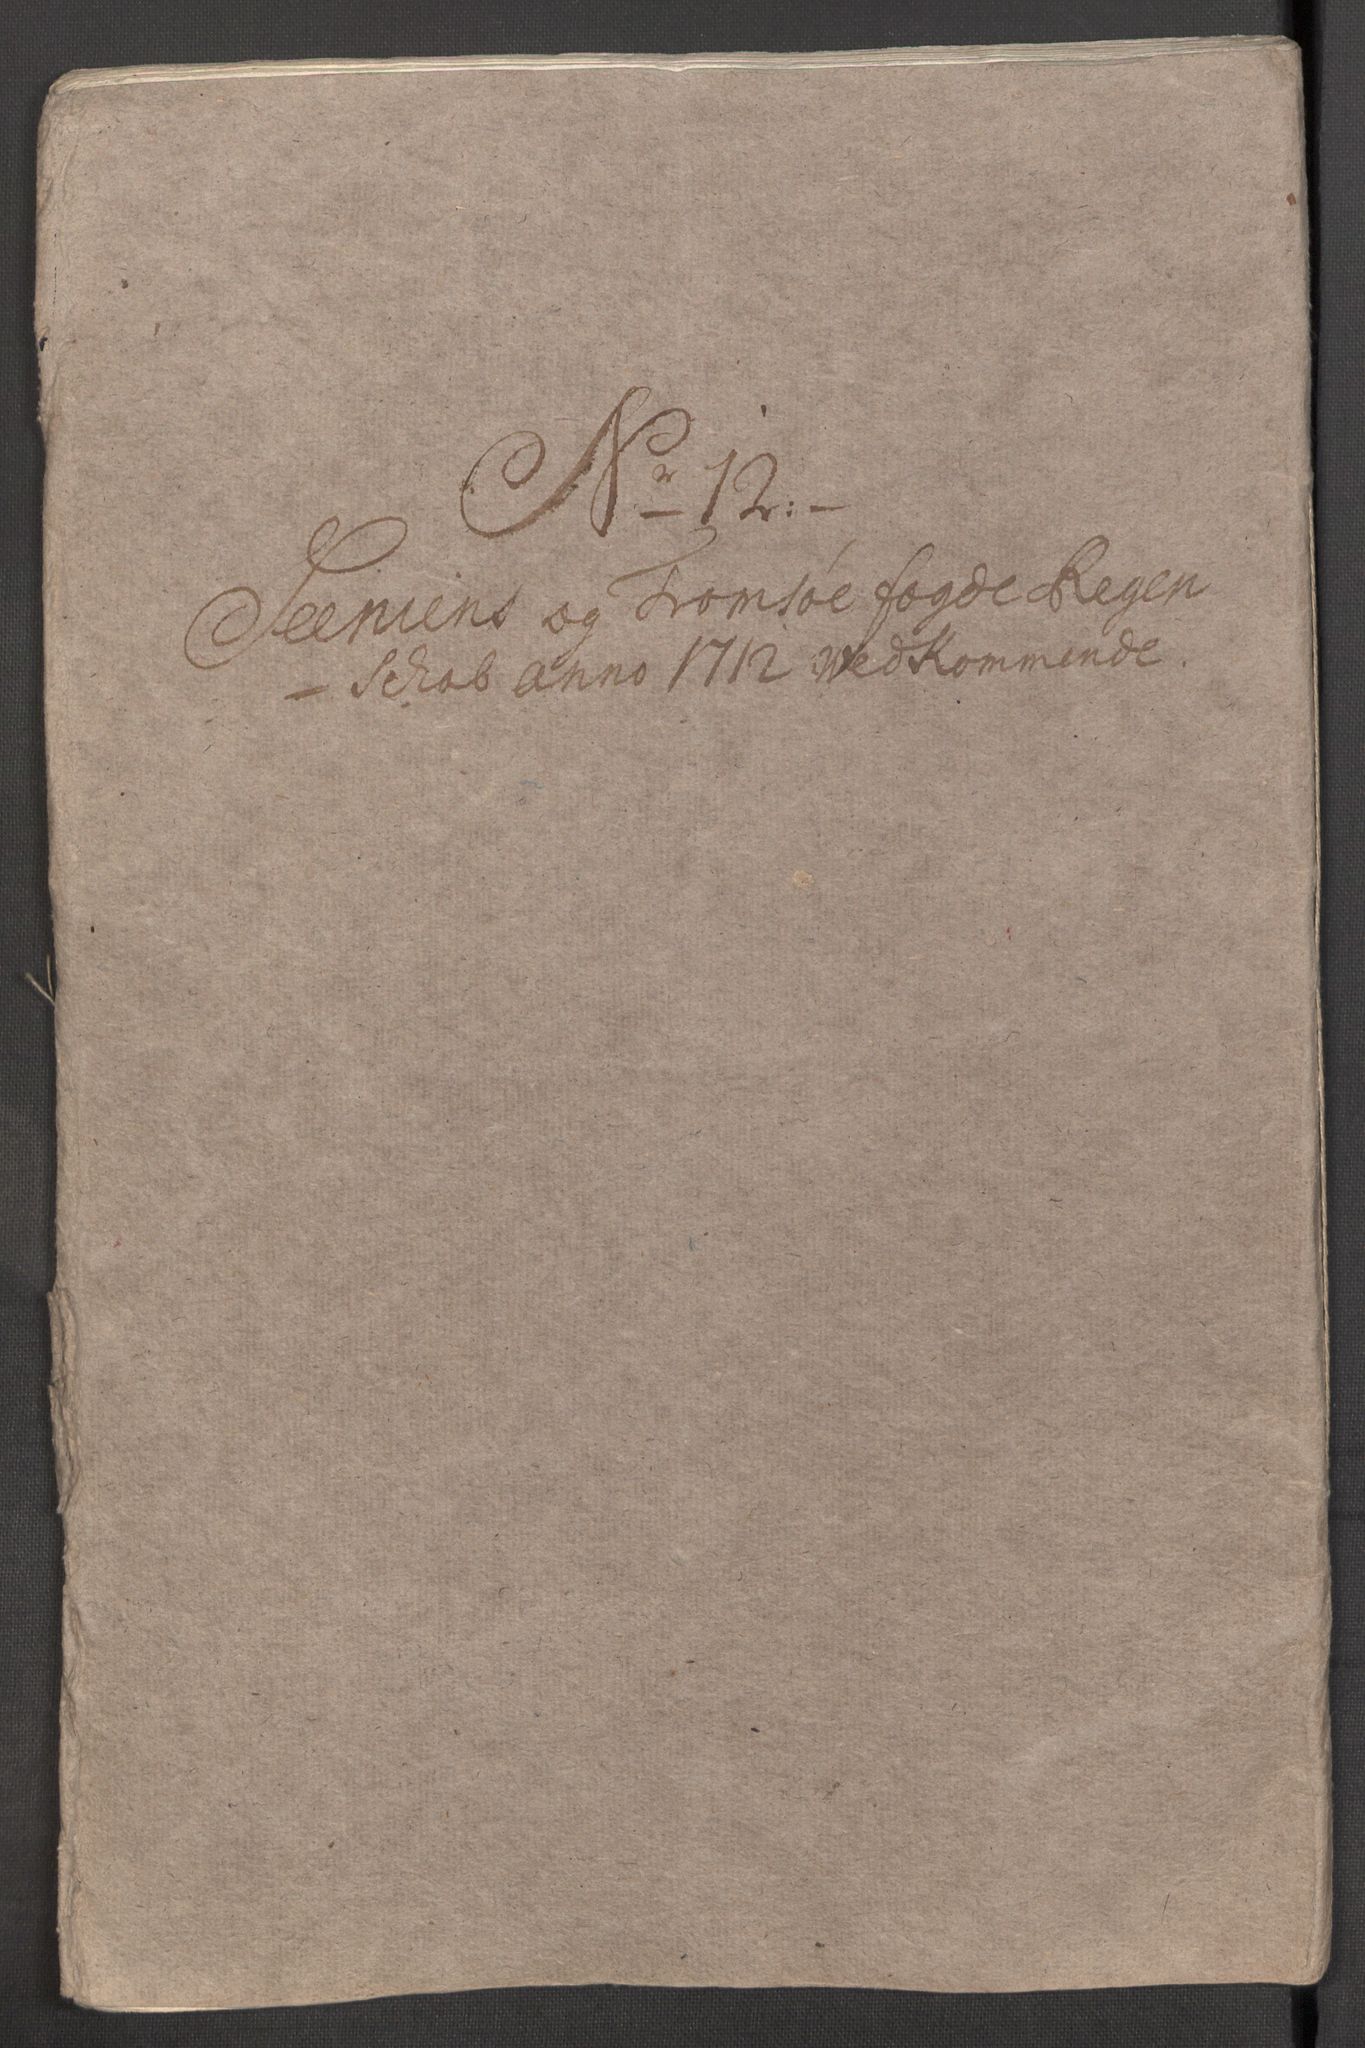 Nr 12:-
Seeniens og Tromsøe fogde Regen
- Schab anno 1712 vedkommende.